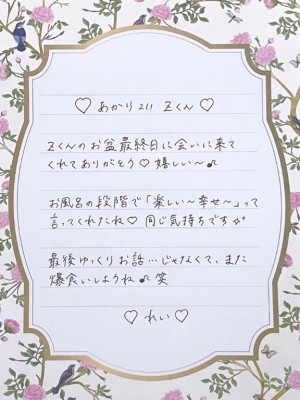 ♡ あかり 211 Zくん ♡
Zくんのお盆最終日に会いに来て
くれてありがとう♡嬉しい〜♪
お風呂の段階で「楽しい〜幸せ〜」って
言ってくれたね♡ 同じ気持ちです✨
最後ゆっくりお話…じゃなくて、また
爆食いしようね♪笑
♡ れい ♡